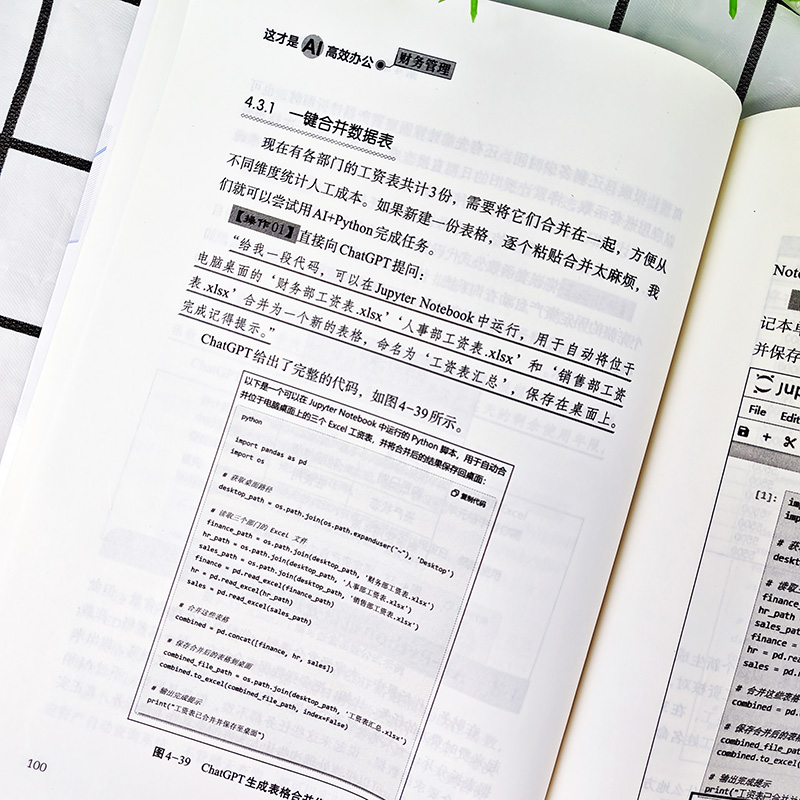 这才是AI高效办公 财务管理
4.3.1 一键合并数据表
现在有各部门的工资表共计3份，需要将它们合并在一起，方便从
不同维度统计人工成本。如果新建一份表格，逐个粘贴合并太麻烦，我
们就可以尝试用AI+Python完成任务。
【操作01】直接向ChatGPT提问：
“给我一段代码，可以在Jupyter Notebook中运行，用于自动将位于
电脑桌面的‘财务部工资表.xlsx’‘人事部工资表.xlsx’和‘销售部工资
表.xlsx’合并为一个新的表格，命名为‘工资表汇总’，保存在桌面上。
完成记得提示。”
ChatGPT给出了完整的代码，如图4-39所示。
以下是一个可以在 Jupyter Notebook 中运行的 Python 脚本，用于自动合
并位于电脑桌面上的三个 Excel 工资表，并将合并后的结果保存回桌面：
python
复制代码
import pandas as pd
import os
# 获取桌面路径
desktop_path = os.path.join(os.path.expanduser("~"), 'Desktop')
# 读取三个部门的 Excel 文件
finance_path = os.path.join(desktop_path, '财务部工资表.xlsx')
hr_path = os.path.join(desktop_path, '人事部工资表.xlsx')
sales_path = os.path.join(desktop_path, '销售部工资表.xlsx')
finance = pd.read_excel(finance_path)
hr = pd.read_excel(hr_path)
sales = pd.read_excel(sales_path)
# 合并这些表格
combined = pd.concat([finance, hr, sales])
# 保存合并后的表格到桌面
combined_file_path = os.path.join(desktop_path, '工资表汇总.xlsx')
combined.to_excel(combined_file_path, index=False)
# 输出完成提示
print("工资表已合并并保存至桌面")
图4-39 ChatGPT生成表格合并
100
Note
记本单
并保存
jup
File Edit
[1]: im
impo
# 获
deskt
# 读取
finance_
hr_path
sales_pa
finance =
hr = pd.re
sales = pd.
# 合并这些表格
combined = pd.
# 保存合并后的表格
combined_file_path
combined.to_excel(
# 输出完成提示
print("工资表已合并并